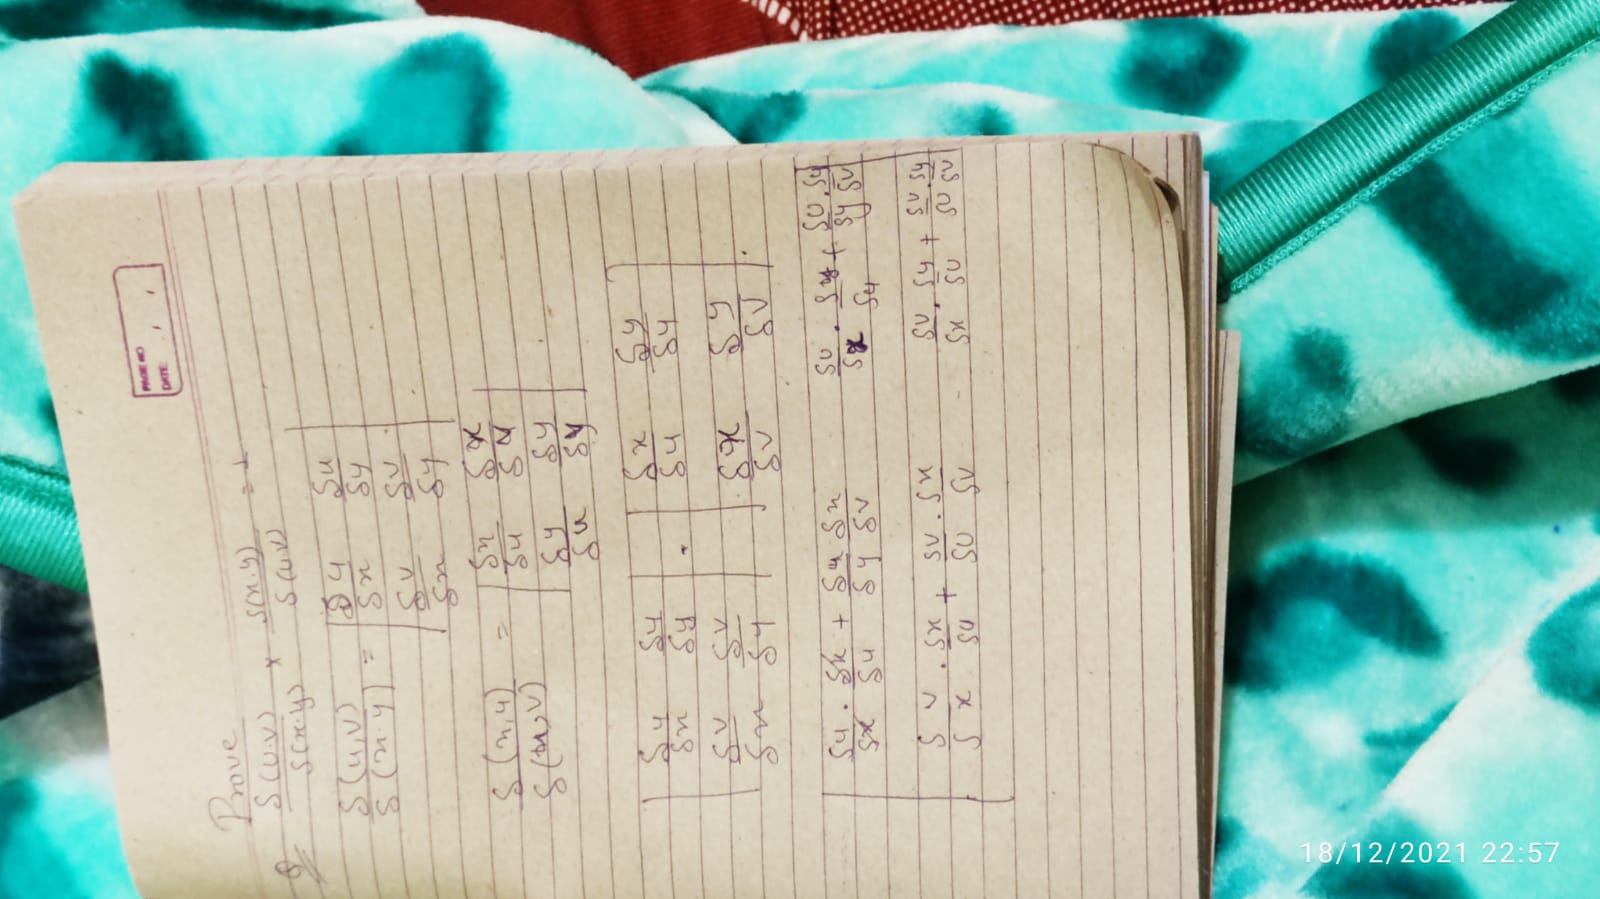 PAGE NO
DATE
Prove
Q δ(u.v)/δ(x.y) × δ(x.y)/δ(u.v) = 1
δ(u,v)/δ(x.y) = | δu/δx δu/δy |
| δv/δx δv/δy |
δ(x,y)/δ(u,v) = | δx/δu δx/δv |
| δy/δu δy/δv |
| δu/δx δu/δy | . | δx/δu δy/δu |
| δv/δx δv/δy | | δx/δv δy/δv |
| δu/δx . δx/δu + δu/δy δx/δv δu/δx . δy/δu + δu/δy . δy/δv |
| δv/δx . δx/δu + δv/δu . δx/δv δv/δx . δy/δu + δv/δu . δy/δv |
18/12/2021 22:57